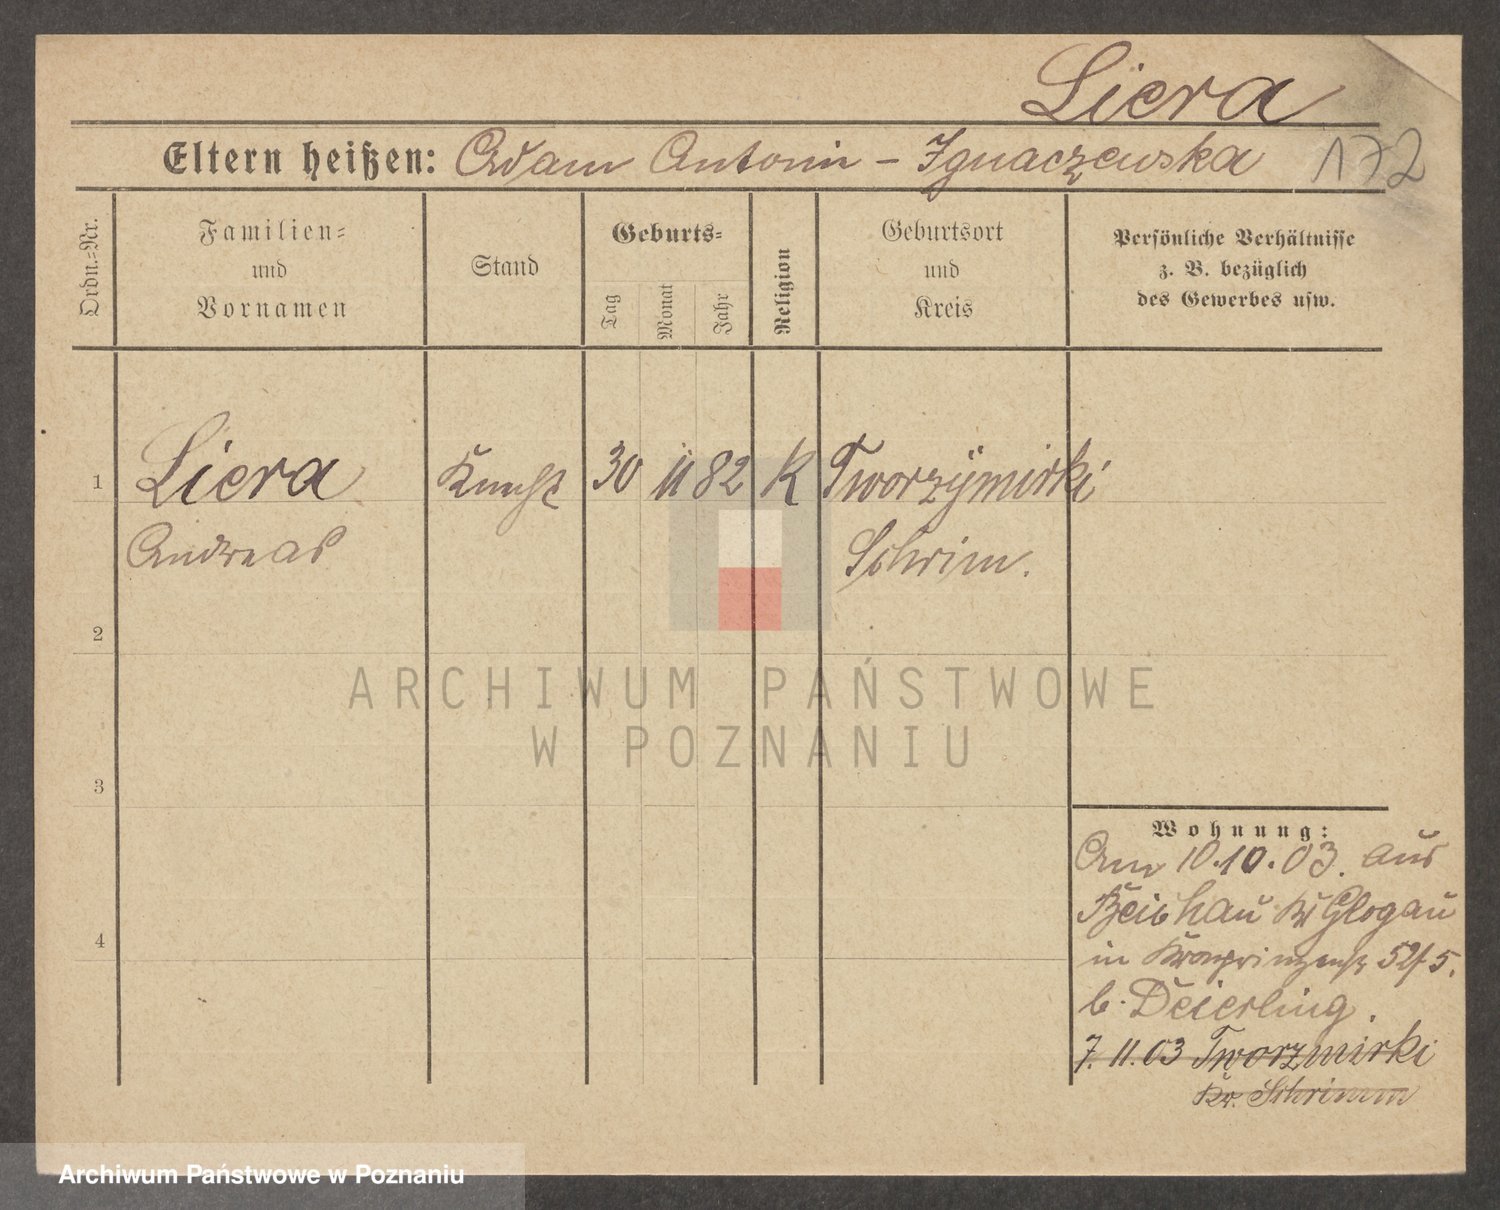 Liera
Eltern heißen: Adam Antonin - Ignaczewska
172
Ordn.-Nr.
Familien-
und
Vornamen
Stand
Geburts-
Tag
Monat
Jahr
Religion
Geburtsort
und
Kreis
Persönliche Verhältnisse
z. B. bezüglich
des Gewerbes usw.
1 Liera Knecht 30 11 82 K Tworzymirki
Andreas Schrim.
2
3
4
Wohnung:
Am 10.10.03. aus
Kr Glogau
in Kronprinzenstr 52/5.
b. Deierling.
7.11.03 Tworzmirki
Kr. Schrimm
ARCHIWUM PAŃSTWOWE
W POZNANIU
Archiwum Państwowe w Poznaniu